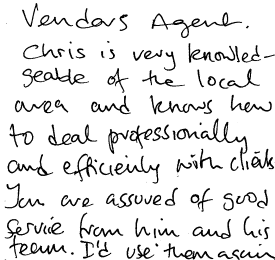 Vendors Agent.
Chris is very knowled-
geable of the local
area and knows how
to deal professionally
and efficiently with clients
You are assured of good
service from him and his
team. I'd use them again